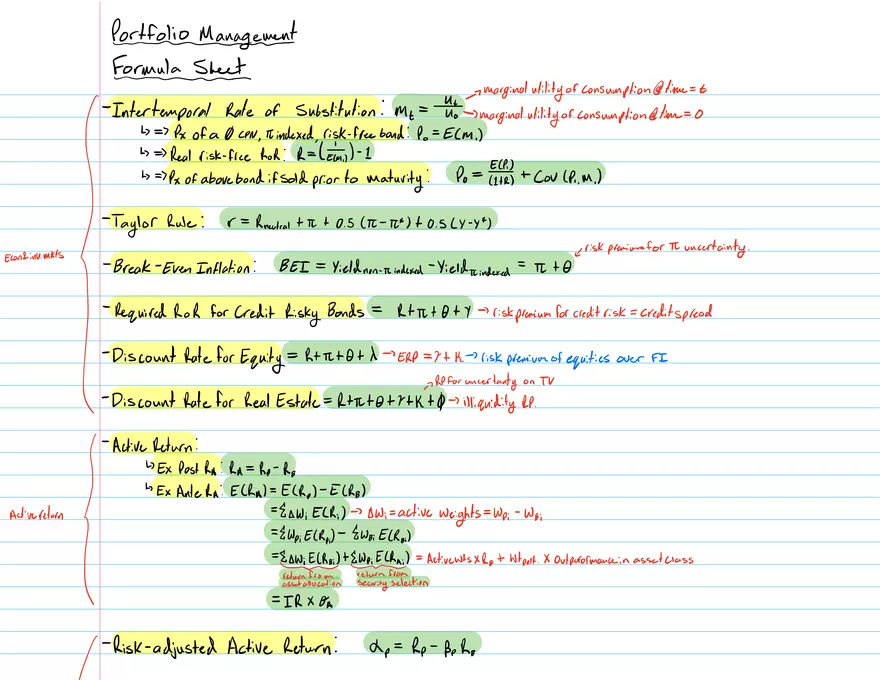 Portfolio Management
Formula Sheet
-Intertemporal Rate of Substitution: mₜ = uₜ/u₀ → marginal utility of consumption @ time = t
→ marginal utility of consumption @ time = 0
↳ => Px of a 0 cpn, π indexed, risk-free bond: P₀ = E(m₁)
↳ => Real risk-free RoR: R = (1/E(m₁)) - 1
↳ => Px of above bond if sold prior to maturity: P₀ = E(P₁)/(1+R) + Cov(P₁m₁)
-Taylor Rule: r = Rneutral + π + 0.5(π-π*) + 0.5(y-y*)
risk premium for π uncertainty.
Econ & inv. mkts
-Break-Even Inflation: BEI = Yield non-π indexed - Yield π indexed = π + θ
-Required RoR for Credit Risky Bonds = R+π+θ+γ → risk premium for credit risk = credit spread
-Discount Rate for Equity = R+π+θ+λ → ERP = γ+K → risk premium of equities over FI
RP for uncertainty on TV
-Discount Rate for Real Estate = R+π+θ+γ+K+ϕ → illiquidity RP.
-Active Return:
↳ Ex Post Rₐ: Rₐ = Rₚ - R_B
↳ Ex Ante Rₐ: E(Rₐ) = E(Rₚ) - E(R_B)
Active return
=ΣΔwᵢ E(Rᵢ) → Δwᵢ = active weights = wₚᵢ - w_Bᵢ
=Σwₚᵢ E(Rₚᵢ) - Σw_Bᵢ E(R_Bᵢ)
=ΣΔwᵢ E(R_Bᵢ) + Σwₚᵢ E(Rₐᵢ) = Active wts x R_B + Wt port. x Outperformance in asset class
return from asset allocation
return from security selection
= IR x σₐ
-Risk-adjusted Active Return: αₚ = Rₚ - βₚ R_B